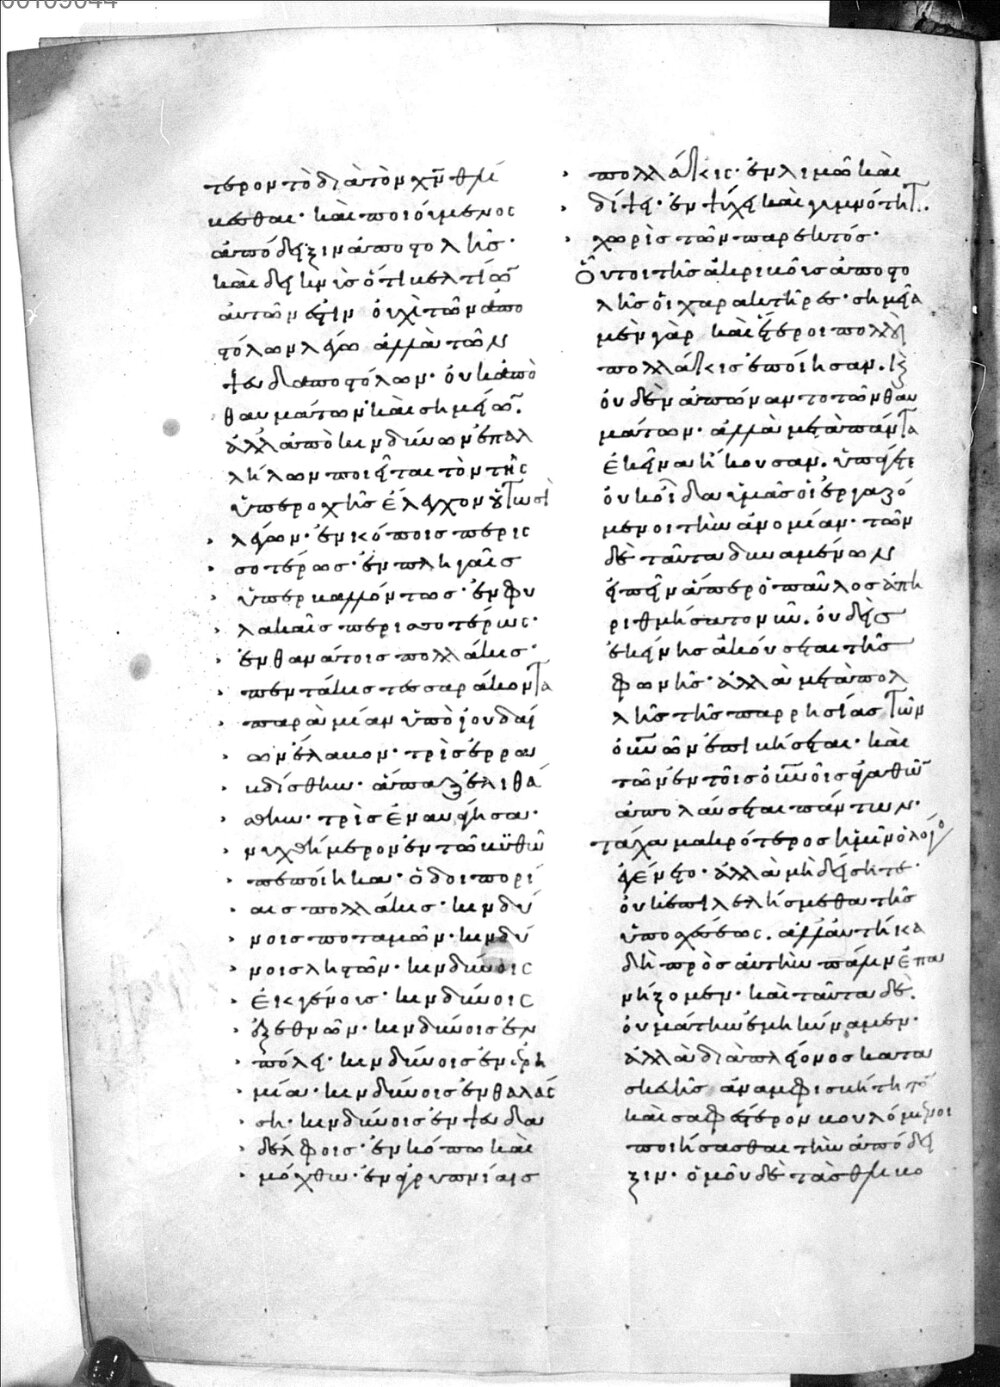 τερον τὸ διὰ τὸν χν θλί
βεσθαι· καὶ ποιούμενος
ἀπόδειξιν ἀποστολῆς·
καὶ δεικνὺς ὅτι βελτίων
αὐτῶν ἐστιν οὐχὶ τῶν ἀπο
στόλων λέγω ἀλλὰ τῶν
ψευδαποστόλων· οὐκ ἀπὸ
θαυμάτων καὶ σημείων·
ἀλλ' ἀπὸ κινδύνων ἐπαλ
λήλων ποιεῖται τὸν τῆς
ὑπεροχῆς ἔλεγχον οὕτωσὶ
λέγων· ἐν κόποις περισ
σοτέρως· ἐν πληγαῖς
ὑπερβαλλόντως· ἐν φυ
λακαῖς περισσοτέρως·
ἐν θανάτοις πολλάκις·
πεντάκις τεσσαράκοντα
παρὰ μίαν ὑπὸ ἰουδαί
ων ἔλαβον· τρὶς ἐρραυ
βδίσθην· ἅπαξ ἐλιθά
σθην· τρὶς ἐναυάγησα·
νυχθήμερον ἐν τῶ βυθῶ
πεποίηκα· ὁδοιπορί
αις πολλάκις· κινδύ
νοις ποταμῶν· κινδύ
νοις ληστῶν· κινδύνοις
ἐκ γένους· κινδύνοις
ἐξ ἐθνῶν· κινδύνοις ἐν
πόλει· κινδύνοις ἐν ἐρη
μία· κινδύνοις ἐν θαλάσ
ση· κινδύνοις ἐν ψευδα
δέλφοις· ἐν κόπω καὶ
μόχθω· ἐν ἀγρυπνίαις
πολλάκις· ἐν λιμῶ καὶ
δίψει· ἐν ψύχει καὶ γυμνότητι·
χωρὶς τῶν παρεκτός·
Οὗτοι τῆς ἀκριβοῦς ἀποστο
λῆς οἱ χαρακτῆρες· σημεῖα
μὲν γὰρ καὶ ἕτεροι πολλοὶ
πολλάκις ἐποίησαν· καὶ
οὐδὲν ἀπώναντο τῶν θαυ
μάτων· ἀλλὰ μετὰ πάντα
ἐκεῖνα ἤκουσαν· ὑπάγετε
οὐκ οἶδα ὑμᾶς οἱ ἐργαζό
μενοι τὴν ἀνομίαν· τῶν
δὲ ταῦτα δυναμένων
εἰπεῖν ἅπερ ὁ παῦλος ἀπη
ριθμήσατο νῦν· οὐδεὶς
ἐκείνης ἀκούσεται τῆς
φωνῆς· ἀλλὰ μετὰ πολ
λῆς τῆς παρρησίας τῶν
οὐνῶν ἐπιβήσεται· καὶ
τῶν ἐν τοῖς οὐνοῖς ἀγαθῶν
ἀπολαύσεται πάντων·
τάχα μακρότερος ἡμῖν ὁ λόγος
ἐγένετο· ἀλλὰ μὴ δείσητε·
οὐκ ἐπιλελήσμεθα τῆς
ὑποσχέσεως· ἀλλ' αὐτίκα
δὴ πρὸς αὐτὴν πάλιν ἐπα
νήξομεν· καὶ ταῦτα δὲ
οὐ μάτην ἐμηκύναμεν·
ἀλλὰ διὰ πλείονος κατα
σκευῆς ἀναμφισβήτητον
καὶ σαφεστέραν βουλόμενοι
ποιήσασθαι τὴν ἀπόδει
ξιν· ὁμοῦ δὲ τὰς θλιβο